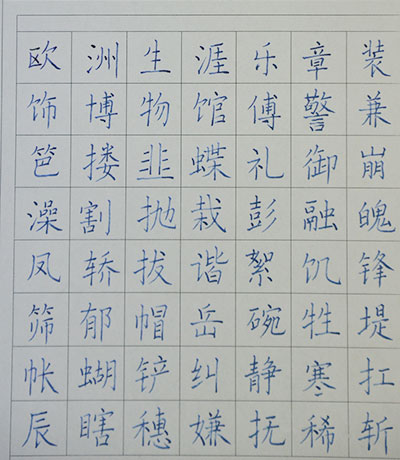 欧洲生涯乐章装
饰博物馆傅警兼
笆搂韭蝶礼御崩
澡割抛栽彭融魄
凤轿拔谐絮饥锋
筛郁帽岳碗牲堤
帐蝴铲纠静寒扛
辰瞎穗嫌抚稀斩